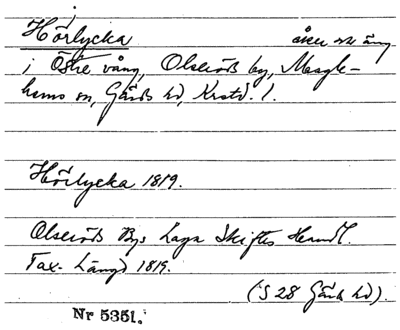 Hörlycka åker och äng
i Östre vång, Olseröds by, Magle-
hems sn, Gärds hd, Krstd. l.
Hörlycka 1819.
Olseröds Bys Laga Skiftes Handl.
Tax-Längd 1819.
(S 28 Gärds hd).
Nr 5351.